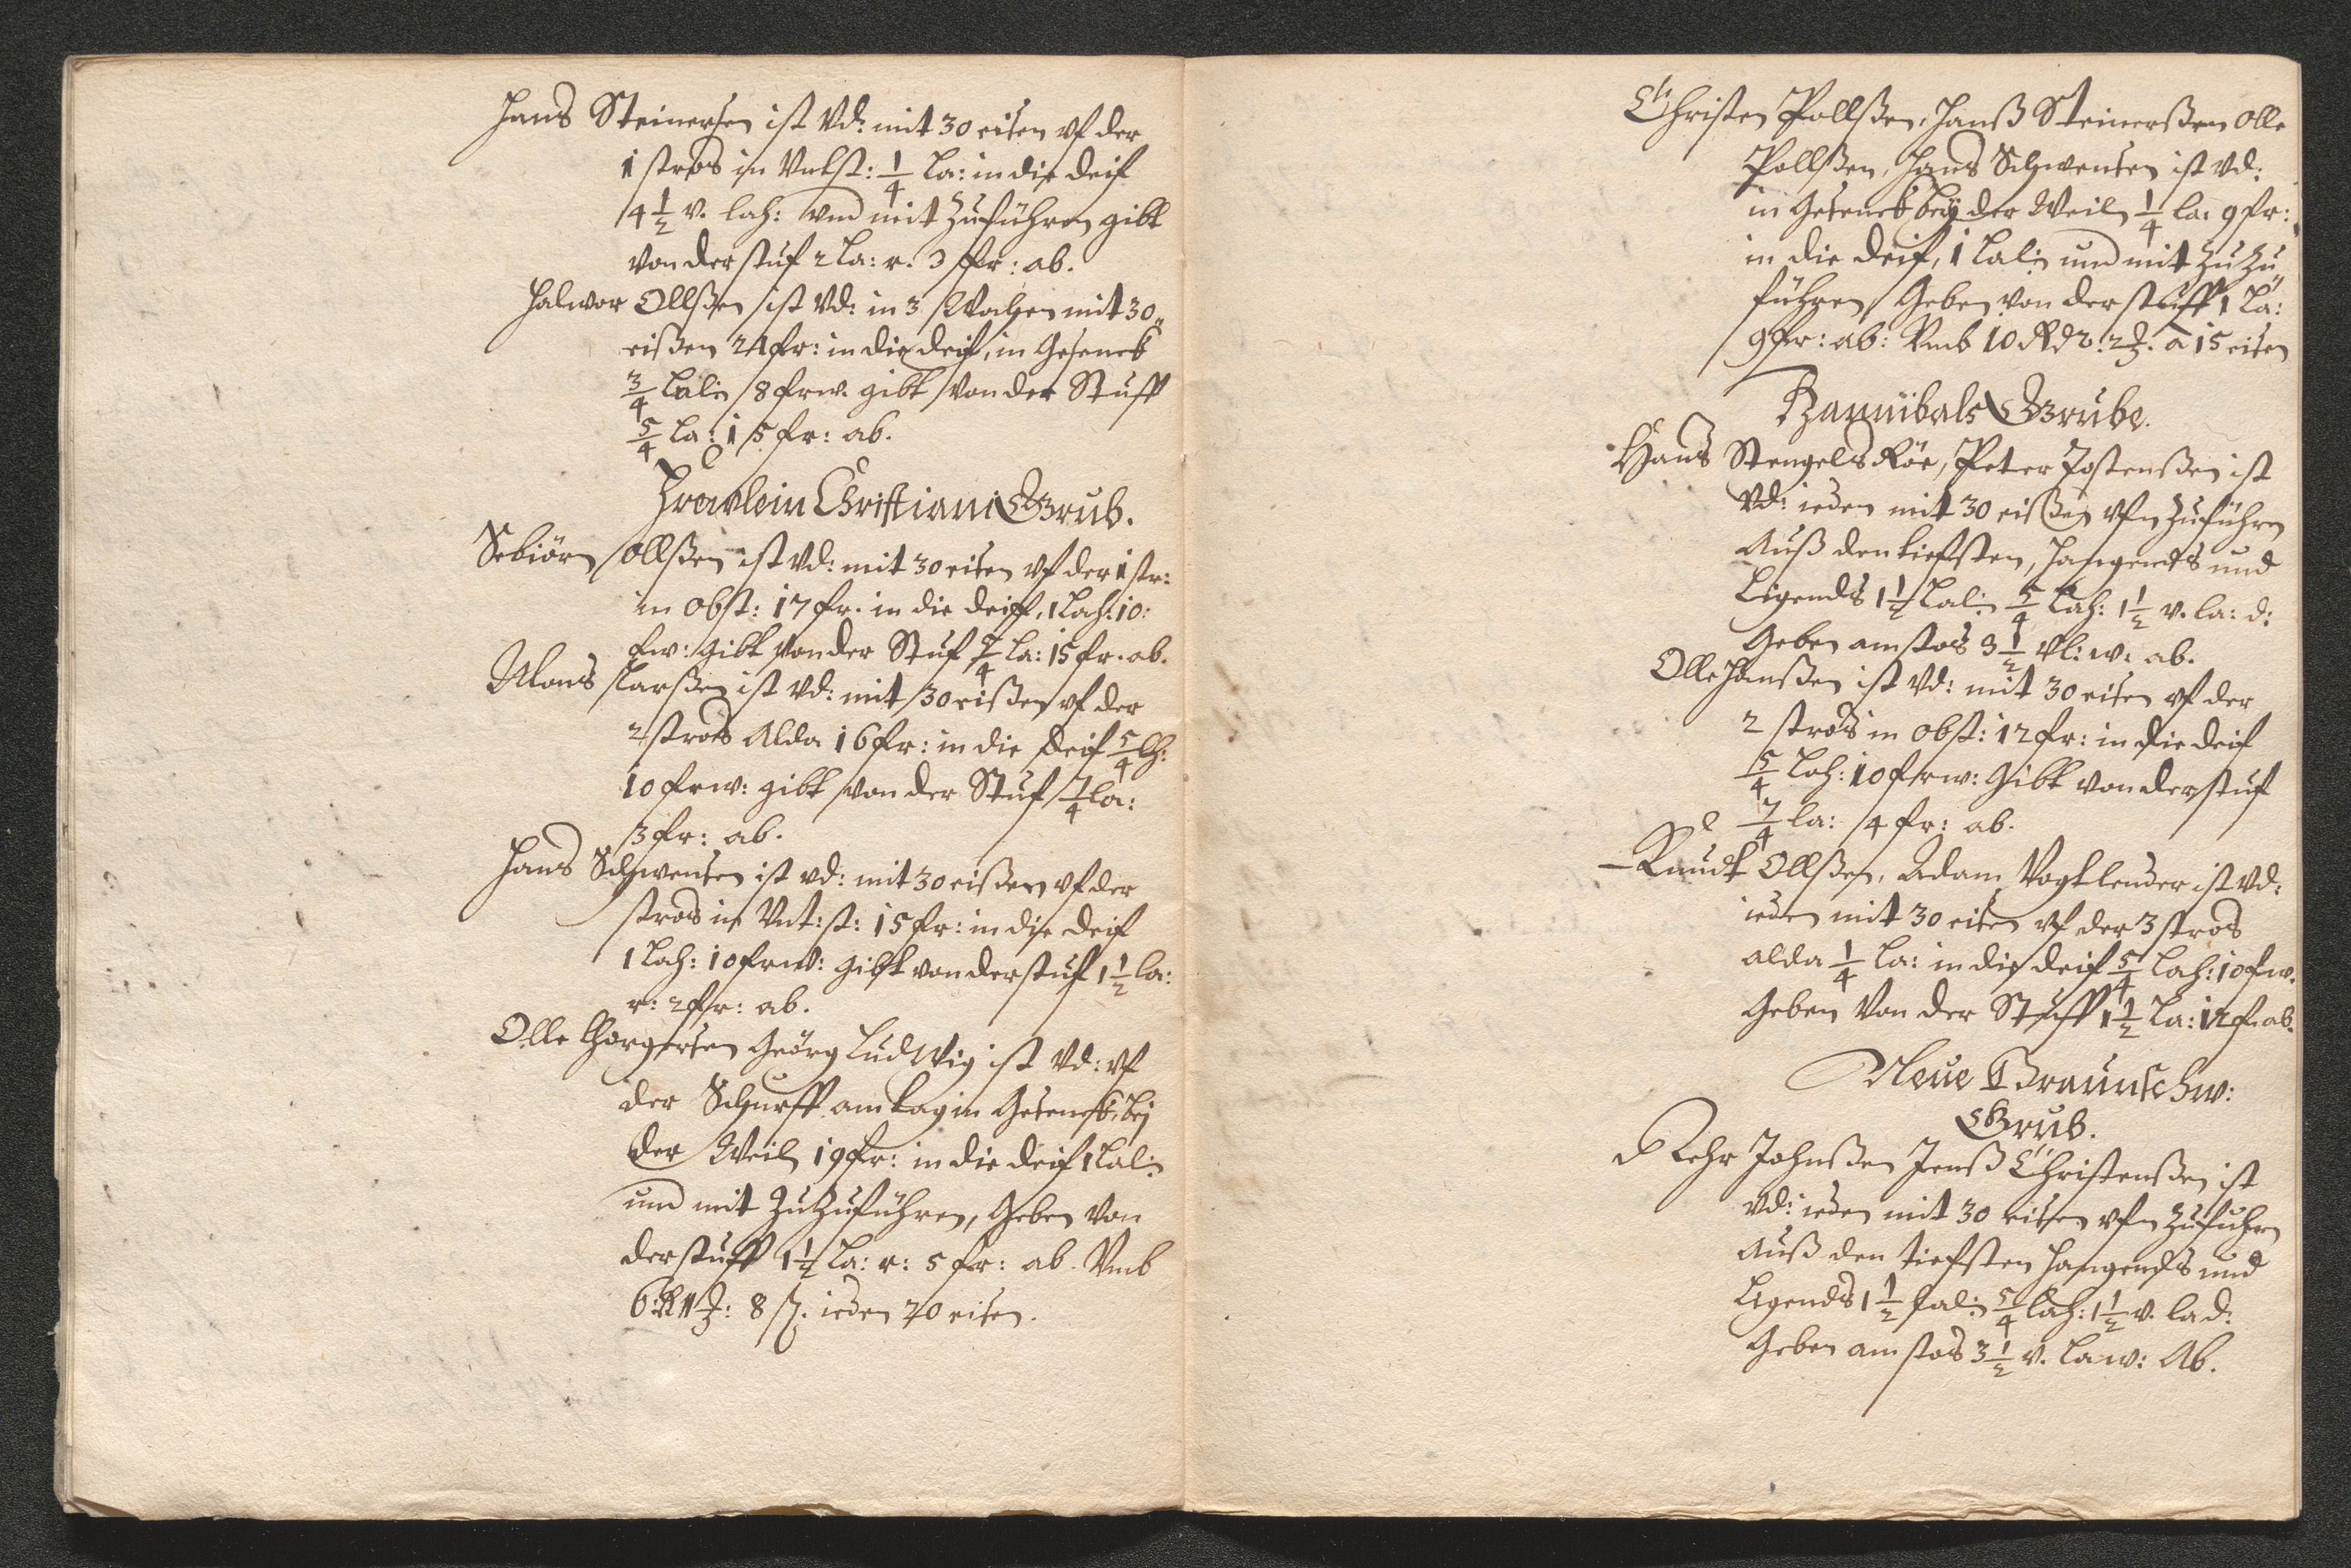 Hans Steinersen ist Vd: mit 30 eisen vf der
1 stros in Vnst: 1/4 La: in die deif
4 1/2 v. lah: vnd mit zuführen gibt
von der stuf 2 La: r. 3 fr: ab.
Halwor Ollßen ist Vd: in 3 Wochen mit 30
eißen 24 fr: in die deif, in Gesenck
3/4 Lal: 8 frw. gibt von der Stuff
5/4 La: 15 fr: ab.
Frewlein Christiani Grub.
Sebiörn Ollßen ist Vd: mit 30 eisen vf der 1 str:
in Obst: 17 fr. in die deiff, 1 Lah: 10:
frw: gibt von der Stuf 7/4 La: 15 fr. ab.
Mons Larßen ist Vd: mit 30 eißen vf der
2 stros Alda 16 fr: in die deif 5/4 lh:
10 frw: gibt von der Stuf 7/4 la:
3 fr: ab.
Hans Schwensen ist vd: mit 30 eißen vf der
stros in Vnt: st: 15 fr: in die deif
1 Lah: 10 frw: gibt von der stuf 1 1/2 la:
r: 2 fr: ab.
Olle Thorgersen Geörg Ludwig ist Vd: vf
der Schurff am tag in Gesenck, bej
der Weil 19 fr: in die deif 1 Lal:
und mit Zu Zuführen, Geben von
der stuff 1 1/2 La: r: 5 fr: ab. Vmb
6 R 8 ß. ieden 20 eisen.
Christen Pollßen, Hanß Steinerßen Olle
Pollßen, Hans Schwensen ist vd:
in Gesenck beÿ der Weil 1/4 la: 9 fr:
in die deif, 1 Lal: und mit Zu Zu
führen, Geben von der stuff 1 La:
9 fr: ab: Vmb 10 Rd à 15 eisen
Hannibals Grube.
Hans Stengels Röe, Peter Jostenßen ist
Vd: ieden mit 30 eißen vfn Zuführen
Auß den tiefsten, Hangends und
Ligends 1 1/2 Lal: 5/4 Lah: 1 1/2 v. la: d:
Geben am stos 3 1/2 vl: w: ab.
Olle Hanßen ist Vd: mit 30 eisen vf der
2 stros in Obst: 12 fr: in die deif
5/4 Lah: 10 frw: Gibt von der stuf
7/4 la: 4 fr: ab.
Knudt Ollßen, Adam Vogtlender ist Vd:
ieden mit 30 eisen vf der 3 stros
alda 1/4 La: in die deif 5/4 Lah: 10 frw.
Geben Von der Stuff 1 1/2 La: 12 f. ab.
Neue Braunschw:
Grub.
Pehr Johnßen Jenß Christenßen ist
vd: ieden mit 30 eisen vfn Zufuhren
Auß den tiefsten Hangends und
Ligends 1 1/2 Lal: 5/4 Lah: 1 1/2 v. la d:
Geben am stos 3 1/2 v. La w: Ab.